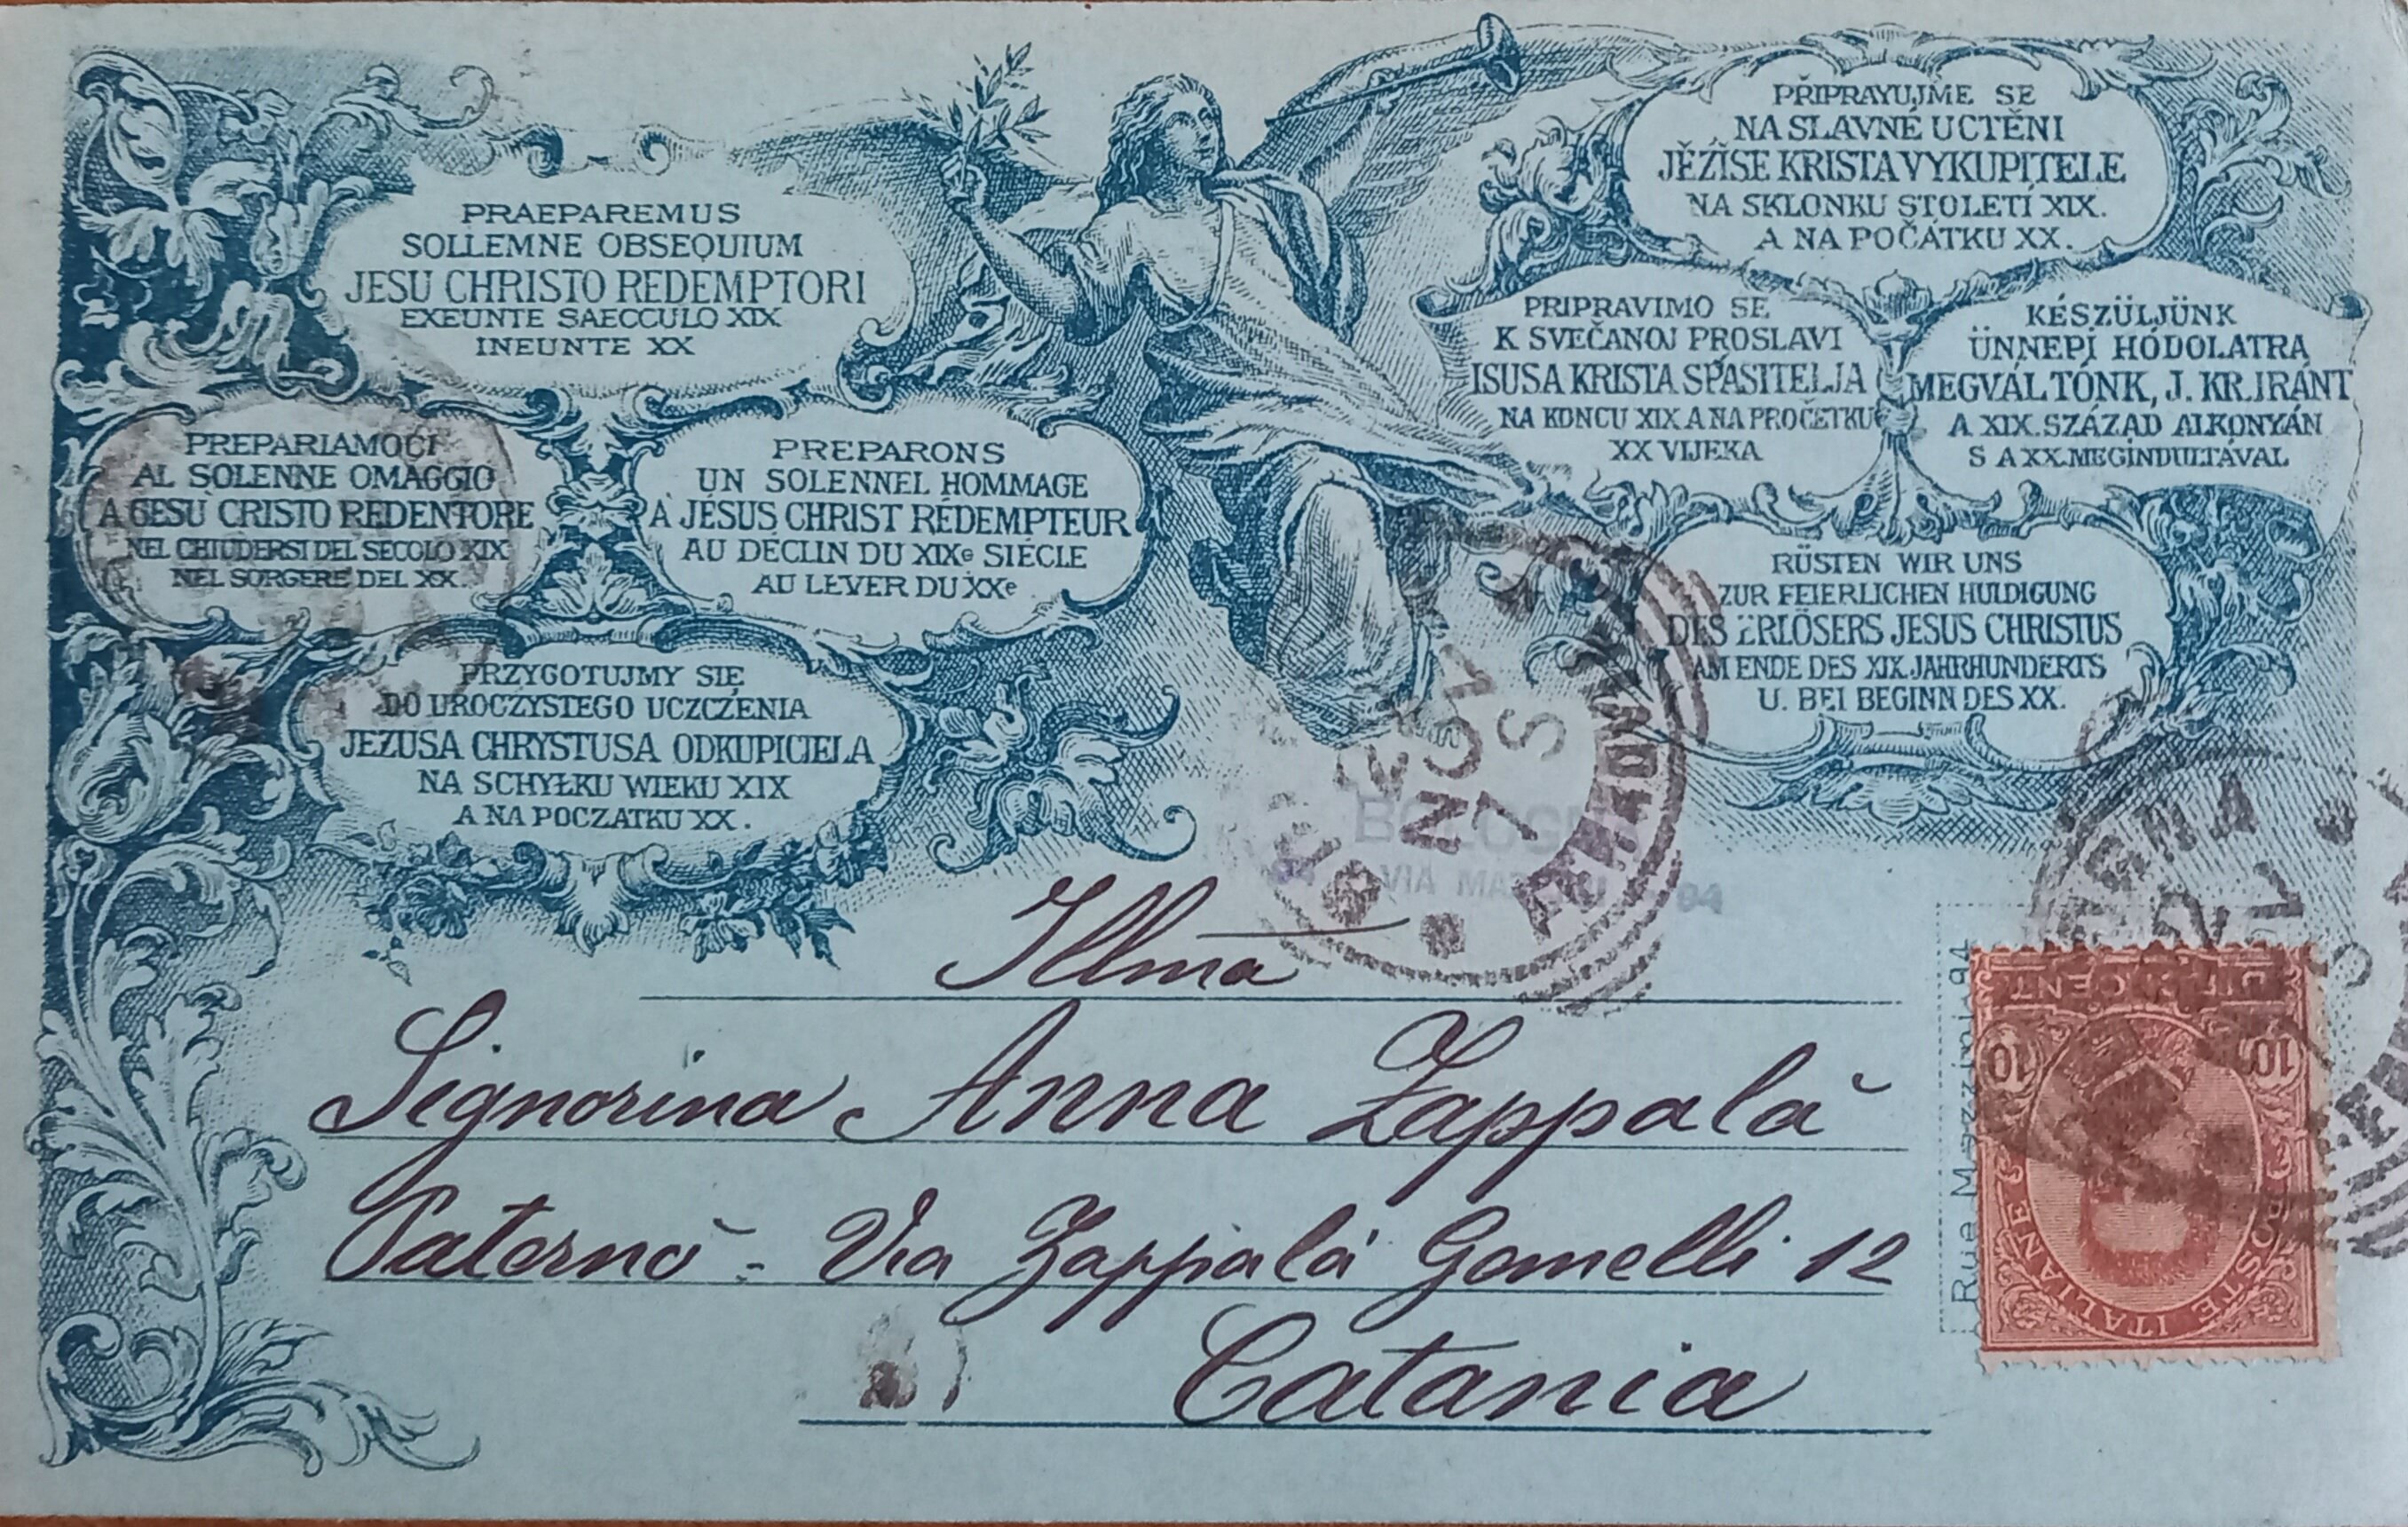 PRAEPAREMUS
SOLLEMNE OBSEQUIUM
JESU CHRISTO REDEMPTORI
EXEUNTE SAECCULO XIX
INEUNTE XX
PREPARIAMOCI
AL SOLENNE OMAGGIO
A GESÙ CRISTO REDENTORE
NEL CHIUDERSI DEL SECOLO XIX
NEL SORGERE DEL XX.
PREPARONS
UN SOLENNEL HOMMAGE
À JÉSUS CHRIST RÉDEMPTEUR
AU DÉCLIN DU XIXe SIÉCLE
AU LEVER DU XXe
PRZYGOTUJMY SIĘ
DO UROCZYSTEGO UCZCZENIA
JEZUSA CHRYSTUSA ODKUPICIELA
NA SCHYŁKU WIEKU XIX
A NA POCZATKU XX.
PŘIPRAYUJME SE
NA SLAVNÉ UCTĚNI
JĚŽÍSE KRISTA VYKUPITELE
NA SKLONKU STOLETÍ XIX.
A NA POČÁTKU XX.
PRIPRAVIMO SE
K SVEČANOJ PROSLAVI
ISUSA KRISTA SPASITELJA
NA KONCU XIX A NA PROČETKU
XX VIJEKA
KÉSZÜLJÜNK
ÜNNEPI HÓDOLATRA
MEGVÁLTÓNK, J. KR. IRÁNT
A XIX. SZÁZAD ALKONYÁN
S A XX. MEGINDULTÁVAL
RÜSTEN WIR UNS
ZUR FEIERLICHEN HULDIGUNG
DES ERLÖSERS JESUS CHRISTUS
AM ENDE DES XIX. JAHRHUNDERTS
U. BEI BEGINN DES XX.
BOLOGNA
94 VIA MAZZINI 94
NOV
7 S
Illma
Signorina Anna Zappalà
Paternò - Via Zappalà Gemelli 12
Catania
Rue Mazzini 94
10 10
POSTE ITALIANE